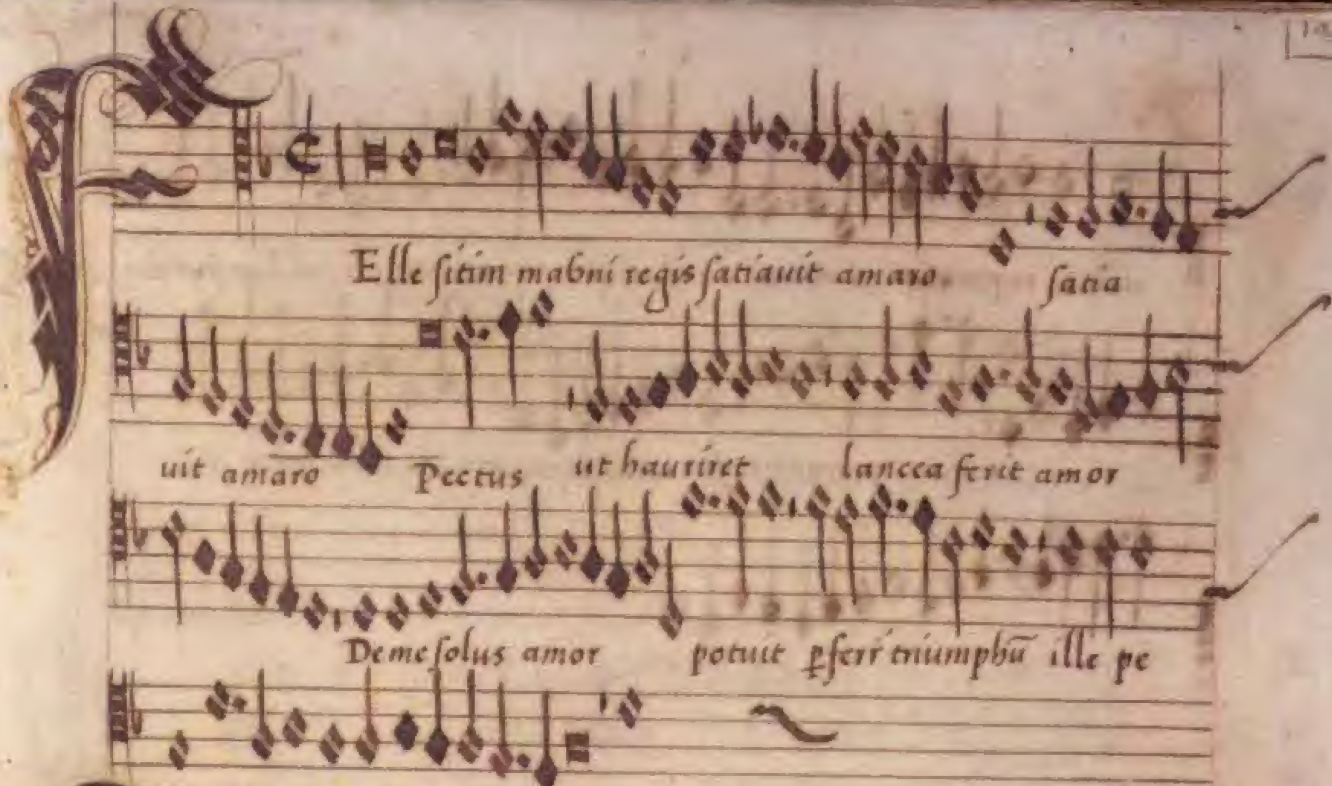 FElle sitim mabni regis satiauit amaro. satia
uit amaro Pectus ut hauriret lancea ferit amor
De me solus amor potuit ꝑferr̄ triumphū ille pe